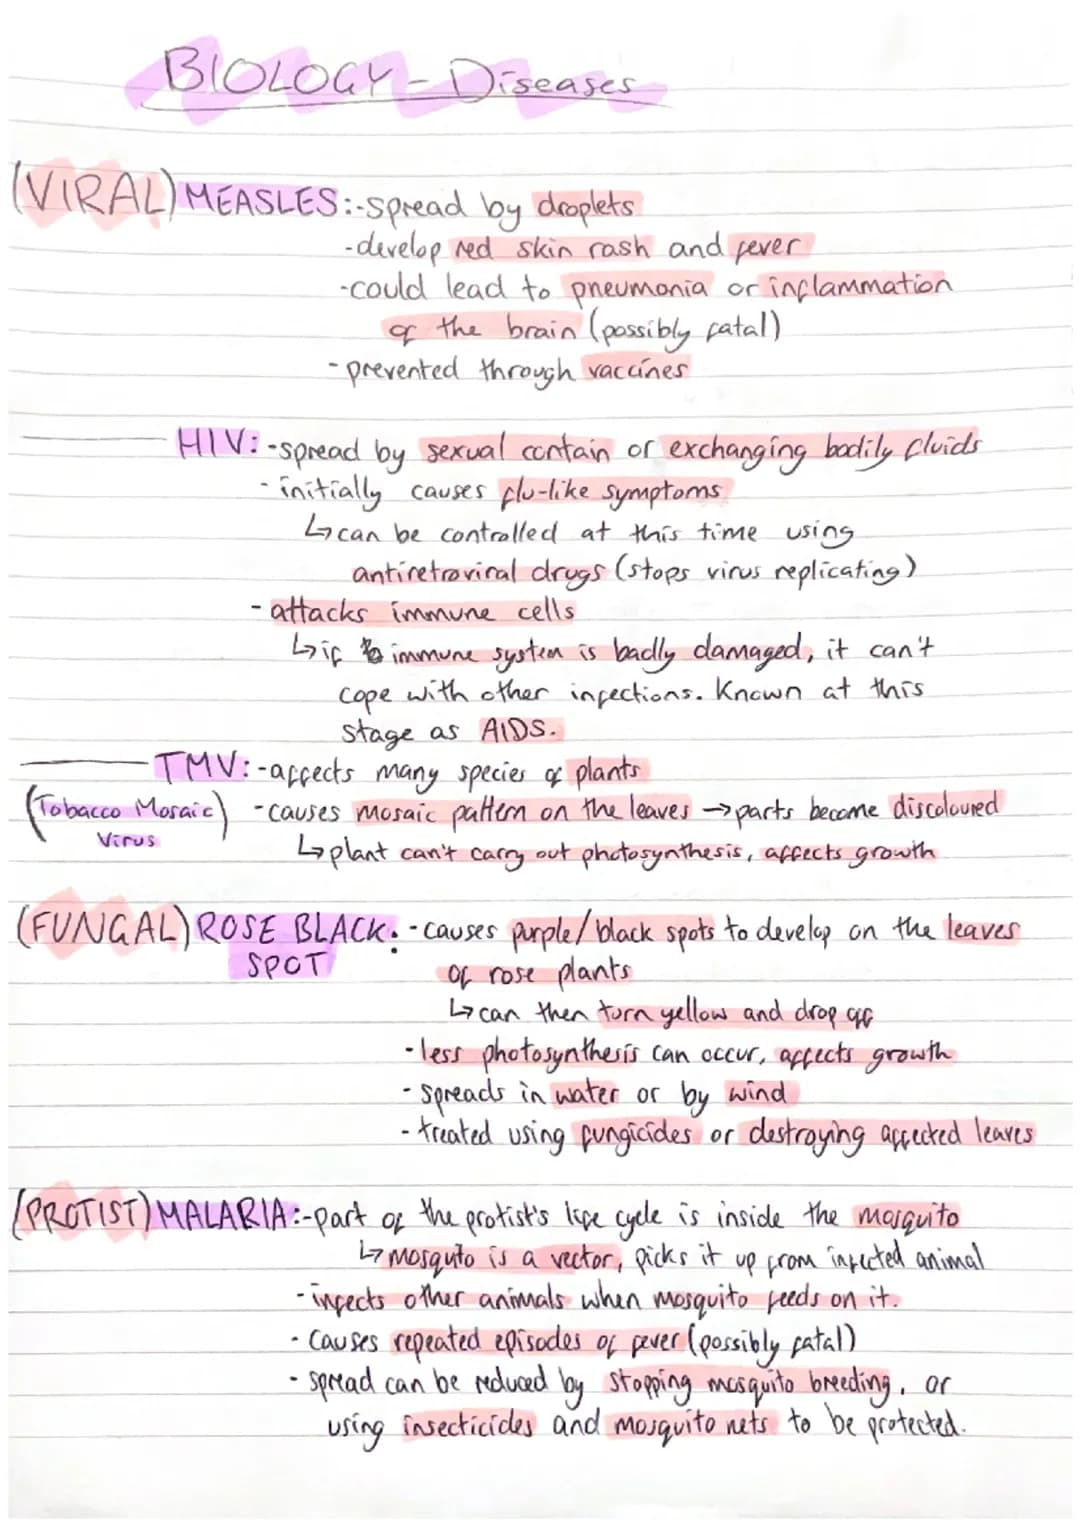 BIOLOGY - Diseases
(VIRAL) MEASLES:-spread by droplets
-develop red skin rash and fever
-could lead to pneumonia or inflammation
of the brain (possibly fatal)
-prevented through vaccines
HIV:-spread by sexual contain or exchanging bodily fluids
-initially causes flu-like symptoms
↳can be controlled at this time using
antiretroviral drugs (stops virus replicating)
-attacks immune cells
↳if immune system is badly damaged, it can't
cope with other infections. Known at this
stage as AIDS.
TMV:-affects many species of plants
(Tobacco Mosaic Virus) -causes mosaic pattern on the leaves →parts become discoloured
↳plant can't carry out photosynthesis, affects growth
(FUNGAL) ROSE BLACK SPOT:-causes purple/black spots to develop on the leaves
of rose plants
↳can then turn yellow and drop off
-less photosynthesis can occur, affects growth
-spreads in water or by wind
-treated using fungicides or destroying affected leaves
(PROTIST) MALARIA:-part of the protist's life cycle is inside the mosquito
↳mosquto is a vector, picks it up from infected animal
-infects other animals when mosquito feeds on it.
-causes repeated episodes of fever (possibly fatal)
-spread can be reduced by stopping mosquito breeding, or
using insecticides and mosquito nets to be protected.